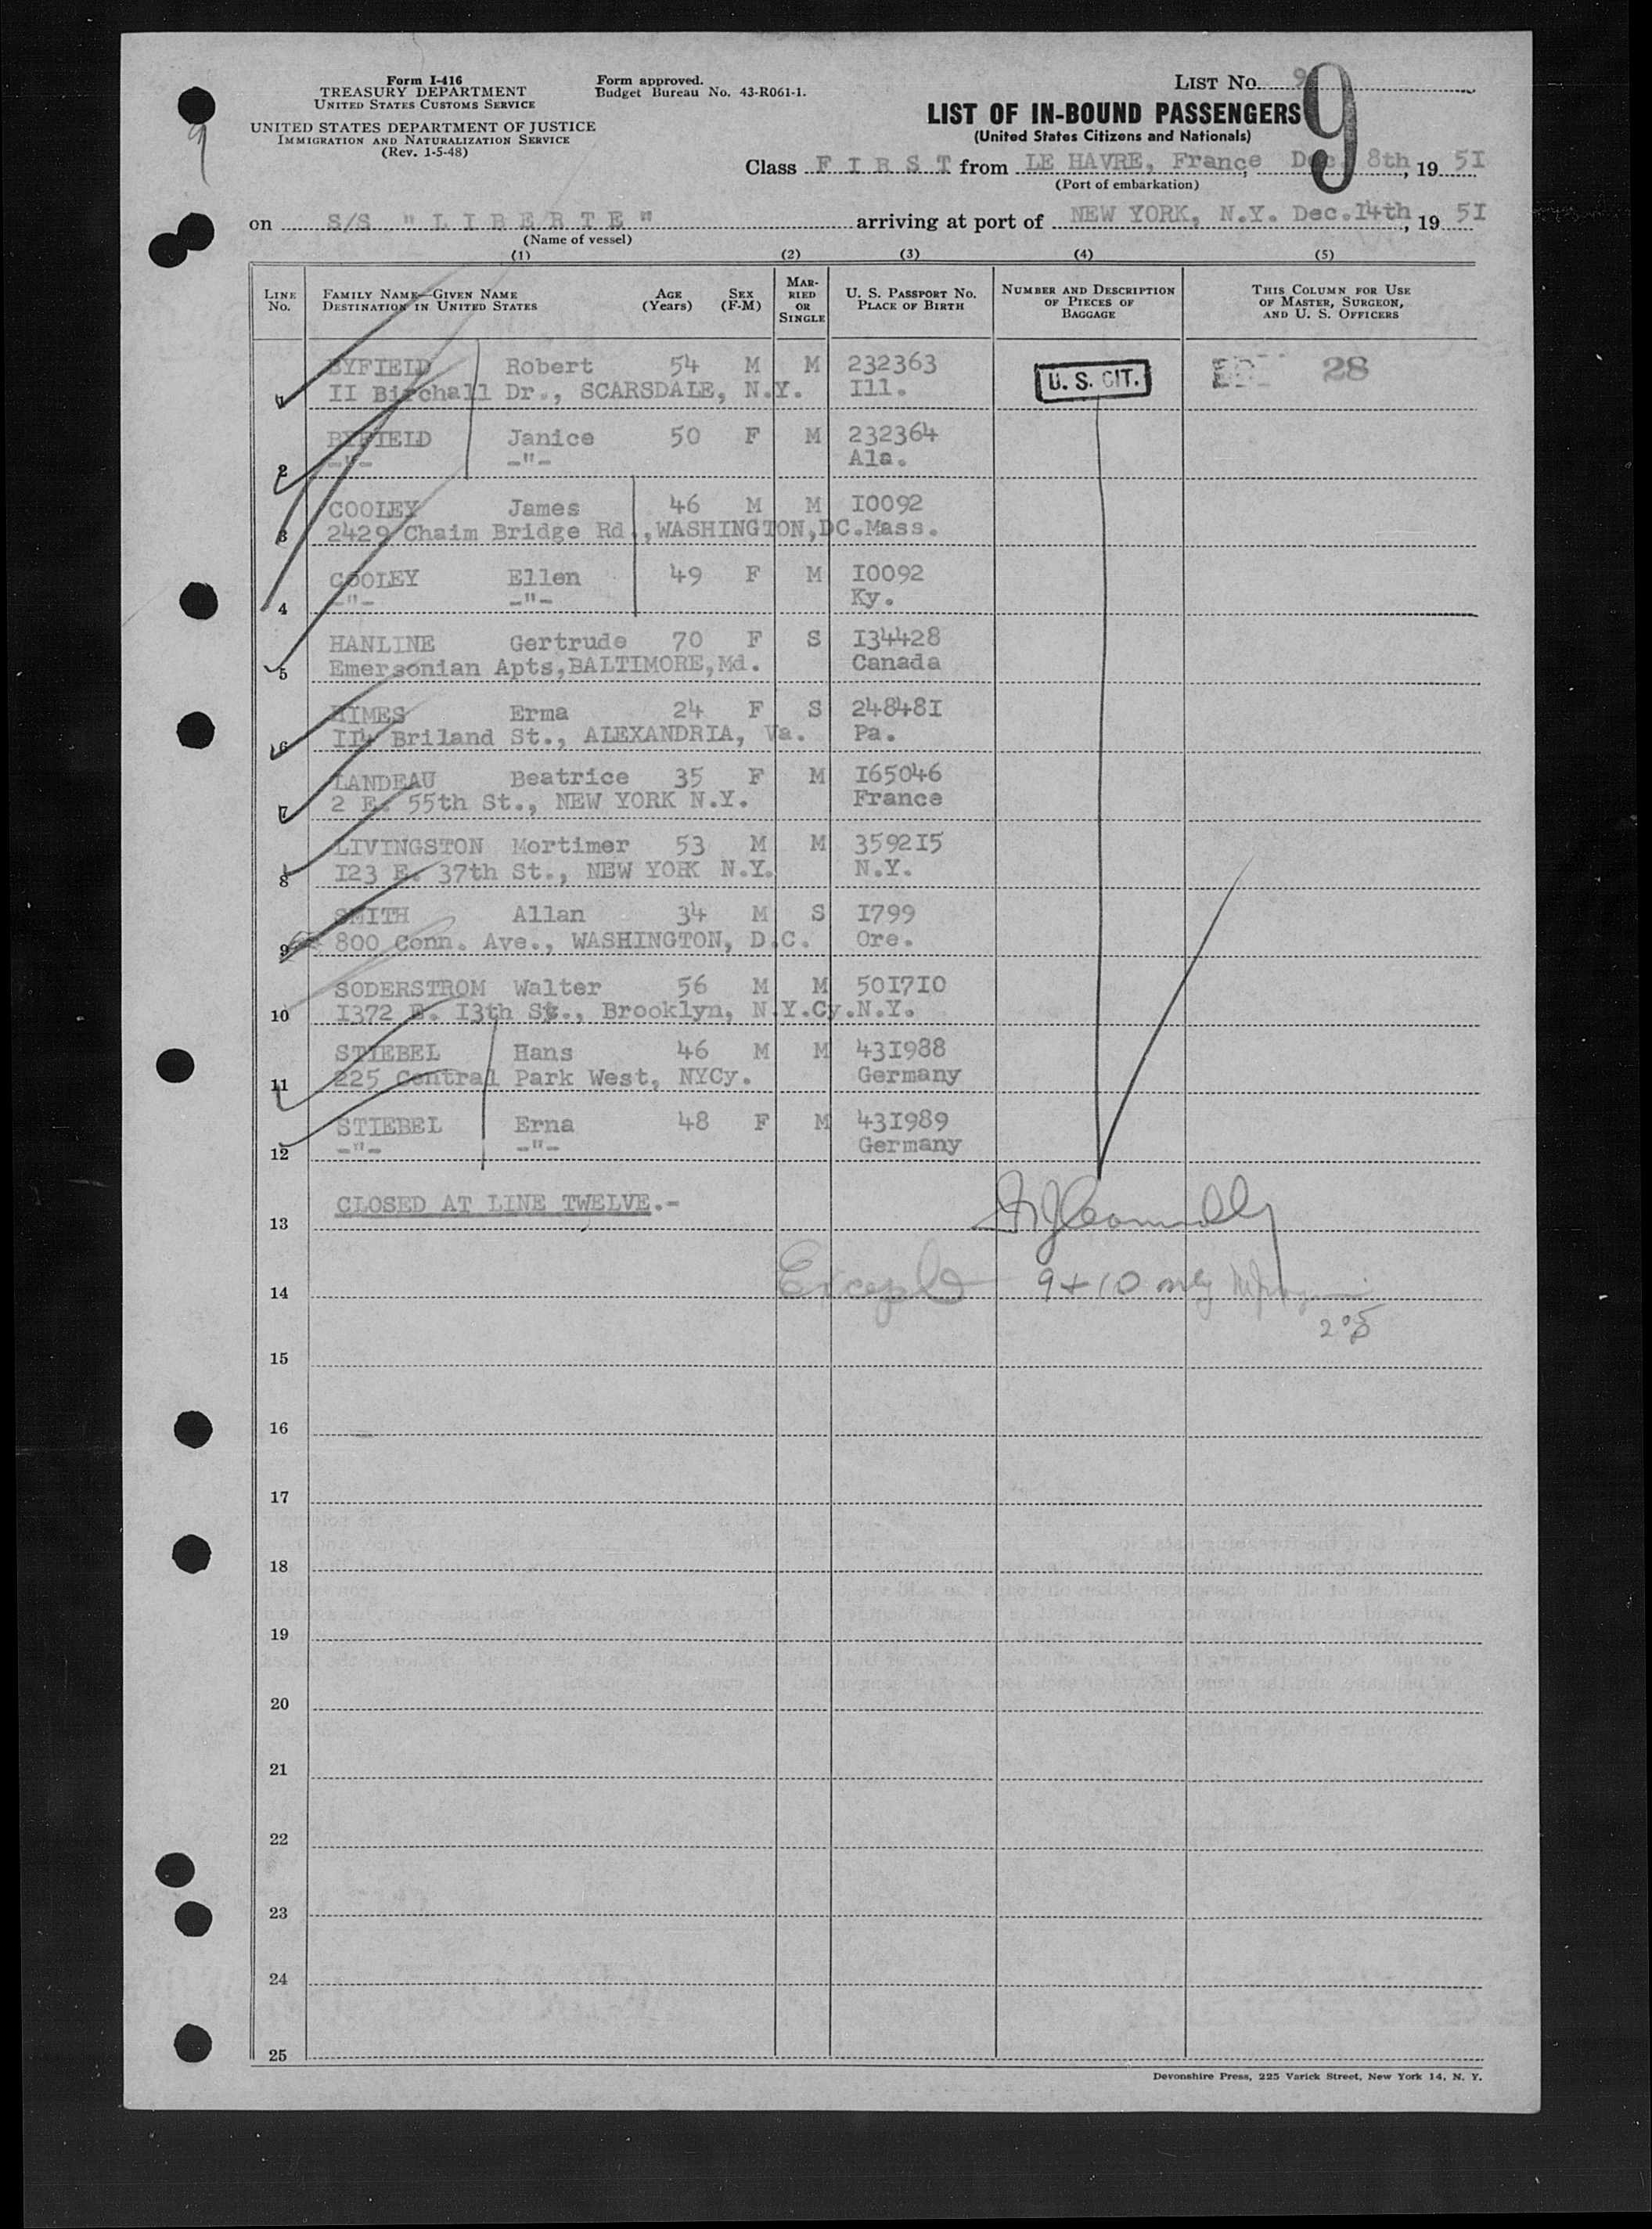 Form I-416
TREASURY DEPARTMENT
UNITED STATES CUSTOMS SERVICE
UNITED STATES DEPARTMENT OF JUSTICE
IMMIGRATION AND NATURALIZATION SERVICE
(Rev. 1-5-48)
Form approved.
Budget Bureau No. 43-R061-1.
LIST No. 9
9
9
LIST OF IN-BOUND PASSENGERS
(United States Citizens and Nationals)
Class F I R S T from LE HAVRE, France, Dec. 8th, 19 5I
(Port of embarkation)
on S/S "L I B E R T E" arriving at port of NEW YORK, N.Y. Dec.I4th, 19 5I
(Name of vessel)
(1) (2) (3) (4) (5)
LINE No. FAMILY NAME—GIVEN NAME DESTINATION IN UNITED STATES AGE (Years) SEX (F-M) MARRIED OR SINGLE U. S. PASSPORT No. PLACE OF BIRTH NUMBER AND DESCRIPTION OF PIECES OF BAGGAGE THIS COLUMN FOR USE OF MASTER, SURGEON, AND U. S. OFFICERS
BYFIELD Robert 54 M M 232363 U. S. CIT. 28
1 II Birchall Dr., SCARSDALE, N.Y. Ill.
BYFIELD Janice 50 F M 232364
2 -"- -"- Ala.
COOLEY James 46 M M I0092
3 2429 Chaim Bridge Rd.,WASHINGTON,DC.Mass.
COOLEY Ellen 49 F M I0092
4 -"- -"- Ky.
HANLINE Gertrude 70 F S I34428
5 Emersonian Apts,BALTIMORE,Md. Canada
HIMES Erma 24 F S 24848I
6 II4 Briland St., ALEXANDRIA, Va. Pa.
LANDEAU Beatrice 35 F M I65046
7 2 E. 55th St., NEW YORK N.Y. France
LIVINGSTON Mortimer 53 M M 3592I5
8 I23 E. 37th St., NEW YORK N.Y. N.Y.
SMITH Allan 34 M S I799
9 800 Conn. Ave., WASHINGTON, D.C. Ore.
SODERSTROM Walter 56 M M 50I7I0
10 I372 E. I3th St., Brooklyn, N.Y.Cy.N.Y.
STIEBEL Hans 46 M M 43I988
11 225 Central Park West, NYCy. Germany
STIEBEL Erna 48 F M 43I989
12 -"- -"- Germany
CLOSED AT LINE TWELVE.-
13
14 Except 9 + 10 only
205
15
16
17
18
19
20
21
22
23
24
25
Devonshire Press, 225 Varick Street, New York 14, N. Y.